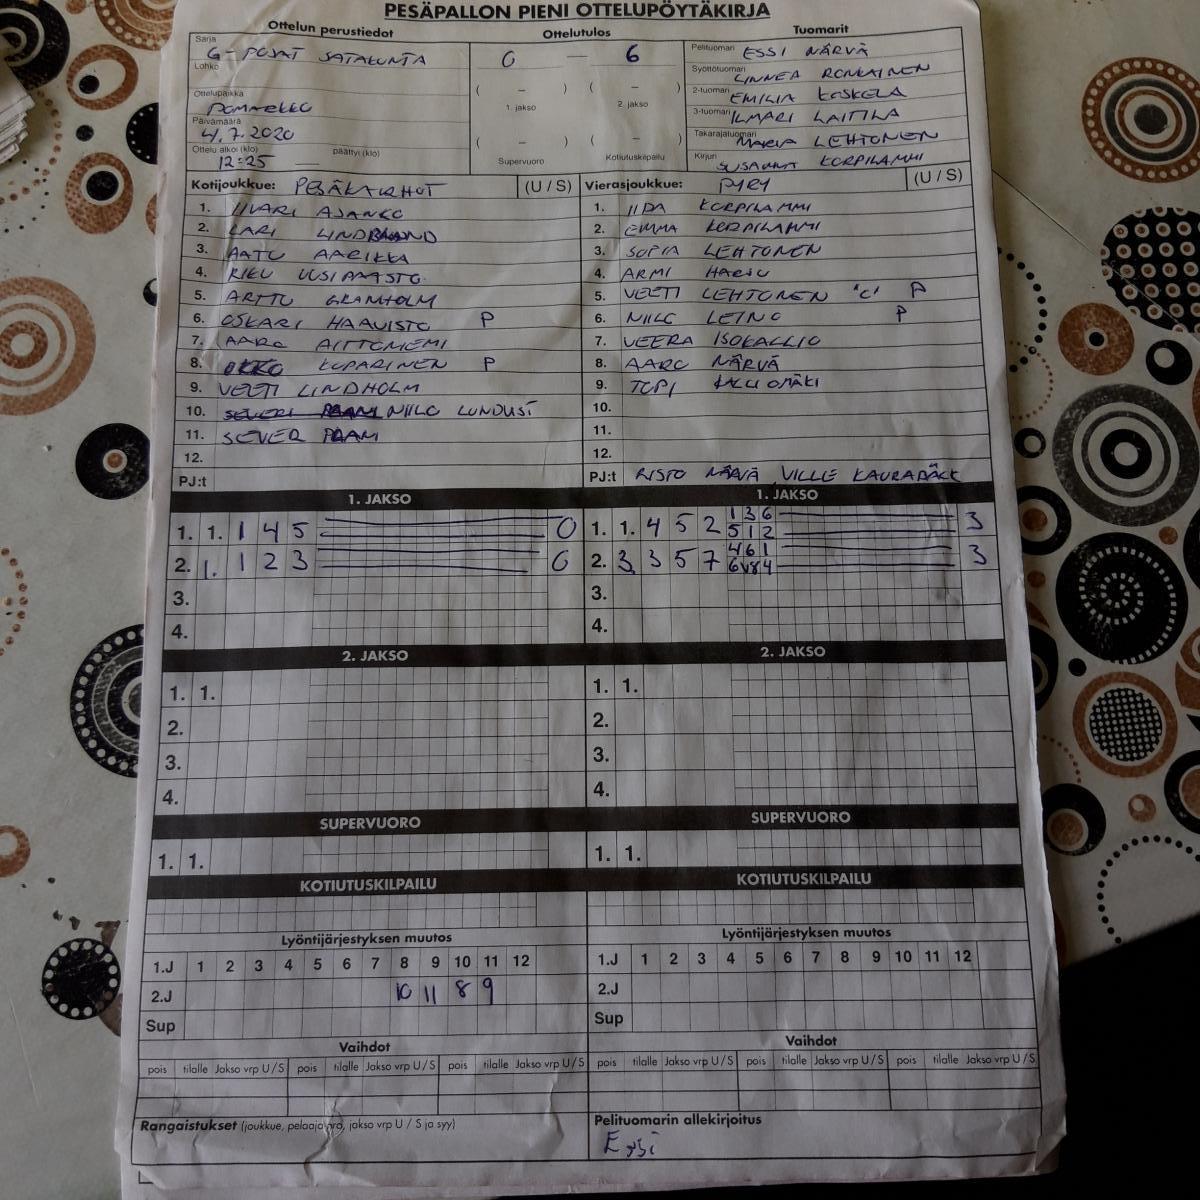 PESÄPALLON PIENI OTTELUPÖYTÄKIRJA
Ottelun perustiedot
Ottelutulos
Tuomarit
Sarja G-POJAT SATAKUNTA
0 — 6
Pelituomari ESSI NÄRVÄ
Lohko
Syöttötuomari LINNEA RONKAINEN
Ottelupaikka
( – ) ( – )
1. jakso 2. jakso
2-tuomari EMILIA KOSKELA
3-tuomari ILMARI LAITILA
Päivämäärä 4.7.2020
( – ) ( – )
Takarajatuomari MARIA LEHTONEN
Ottelu alkoi (klo) 12:25 — päättyi (klo)
Supervuoro Kotiutuskilpailu
Kirjuri SUSANNA KORPILAMMI
Kotijoukkue: PESÄKARHUT (U / S)
Vierasjoukkue: PYRY (U / S)
1. IIVARI AJANKO
1. IIDA KORPILAMMI
2. LARI
2. EMMA KORPILAMMI
3. AATU AARIKKA
3. SOFIA LEHTONEN
4. RIKU UUSIPAASTO
4. ARMI HARJU
5. ARTTU GRANHOLM
5. VEETI LEHTONEN "C" P
6. OSKARI HAAVISTO P
6. NIILO LEINO P
7. AARO AITTONIEMI
7. VEERA ISOKALLIO
8. OKKO KUPARINEN P
8. AARO NÄRVÄ
9. VEETI LINDHOLM
9. TOPI
10. NIILO
10.
11. SEVER
11.
12.
12.
PJ:t
PJ:t RISTO NÄRVÄ VILLE
1. JAKSO
1. JAKSO
1. 1. 1 4 5 0
1. 1. 4 5 2 1 3 6 5 1 2 3
2. 1. 1 2 3 0
2. 3. 3 5 7 4 6 1 3
3.
3.
4.
4.
2. JAKSO
2. JAKSO
1. 1.
1. 1.
2.
2.
3.
3.
4.
4.
SUPERVUORO
SUPERVUORO
1. 1.
1. 1.
KOTIUTUSKILPAILU
KOTIUTUSKILPAILU
Lyöntijärjestyksen muutos
Lyöntijärjestyksen muutos
1.J 1 2 3 4 5 6 7 8 9 10 11 12
1.J 1 2 3 4 5 6 7 8 9 10 11 12
2.J 10 11 8 9
2.J
Sup
Sup
Vaihdot
Vaihdot
pois tilalle Jakso vrp U / S pois tilalle Jakso vrp U / S pois tilalle Jakso vrp U / S
pois tilalle Jakso vrp U / S pois tilalle Jakso vrp U / S pois tilalle Jakso vrp U / S
Rangaistukset (joukkue, pelaajanro, jakso vrp U / S ja syy)
Pelituomarin allekirjoitus
Essi